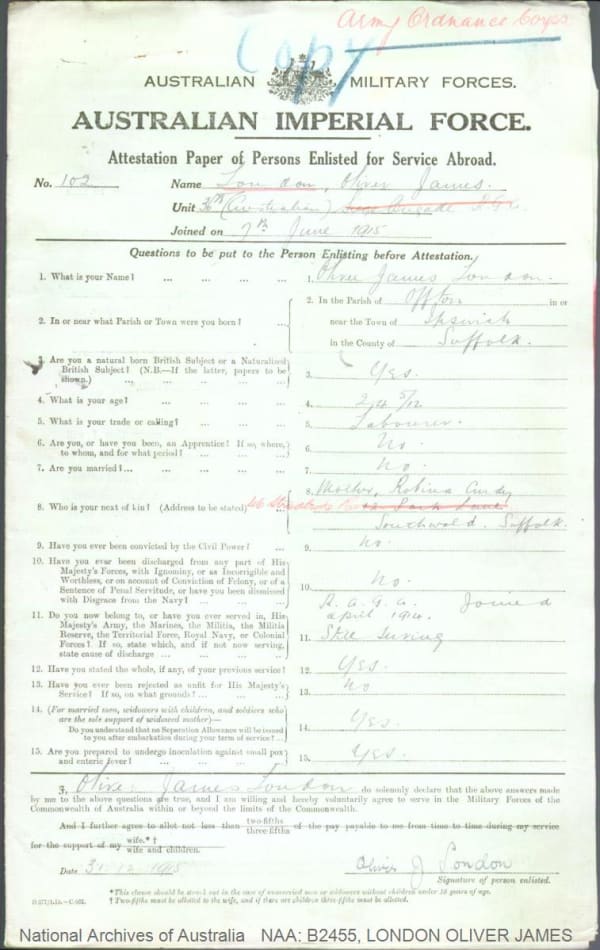 Army Ordnance Corps
Copy
AUSTRALIAN MILITARY FORCES.
AUSTRALIAN IMPERIAL FORCE.
Attestation Paper of Persons Enlisted for Service Abroad.
No. 102 Name London, Oliver James.
Unit 36th (Australian) Brigade
Joined on 7th June 1915
Questions to be put to the Person Enlisting before Attestation.
1. What is your Name? ... ... ... ... 1. Oliver James London.
2. In or near what Parish or Town were you born? ... 2. In the Parish of Offton in or
near the Town of Ipswich
in the County of Suffolk.
3. Are you a natural born British Subject or a Naturalized
British Subject? (N.B.—If the latter, papers to be
shown.) ... ... ... ... 3. Yes.
4. What is your age? ... ... ... ... 4. 24 5/12
5. What is your trade or calling? ... ... ... 5. Labourer.
6. Are you, or have you been, an Apprentice? If so, where,
to whom, and for what period? ... ... ... 6. No.
7. Are you married? ... ... ... ... 7. No.
8. Who is your next of kin? (Address to be stated) 8. Mother, Robina Curdy
Southwold. Suffolk.
9. Have you ever been convicted by the Civil Power? ... 9. No.
10. Have you ever been discharged from any part of His
Majesty's Forces, with Ignominy, or as Incorrigible and
Worthless, or on account of Conviction of Felony, or of a
Sentence of Penal Servitude, or have you been dismissed
with Disgrace from the Navy? ... ... ... 10. No.
11. Do you now belong to, or have you ever served in, His
Majesty's Army, the Marines, the Militia, the Militia
Reserve, the Territorial Force, Royal Navy, or Colonial
Forces? If so, state which, and if not now serving,
state cause of discharge ... ... ... 11. R.A.G.A. Joined
April 1914.
Still Serving
12. Have you stated the whole, if any, of your previous service? 12. Yes.
13. Have you ever been rejected as unfit for His Majesty's
Service? If so, on what grounds? ... ... ... 13. No
14. (For married men, widowers with children, and soldiers who
are the sole support of widowed mother)—
Do you understand that no Separation Allowance will be issued
to you after embarkation during your term of service? ... 14. Yes.
15. Are you prepared to undergo inoculation against small pox
and enteric fever? ... ... ... ... 15. Yes.
I, Oliver James London do solemnly declare that the above answers made
by me to the above questions are true, and I am willing and hereby voluntarily agree to serve in the Military Forces of the
Commonwealth of Australia within or beyond the limits of the Commonwealth.
And I further agree to allot not less than two-fifths three-fifths of the pay payable to me from time to time during my service
for the support of my wife.*† wife and children.
Date 1915 Oliver J London
Signature of person enlisted.
*This clause should be struck out in the case of unmarried men or widowers without children under 18 years of age.
† Two-fifths must be allotted to the wife, and if there are children three-fifths must be allotted.
National Archives of Australia NAA: B2455, LONDON OLIVER JAMES